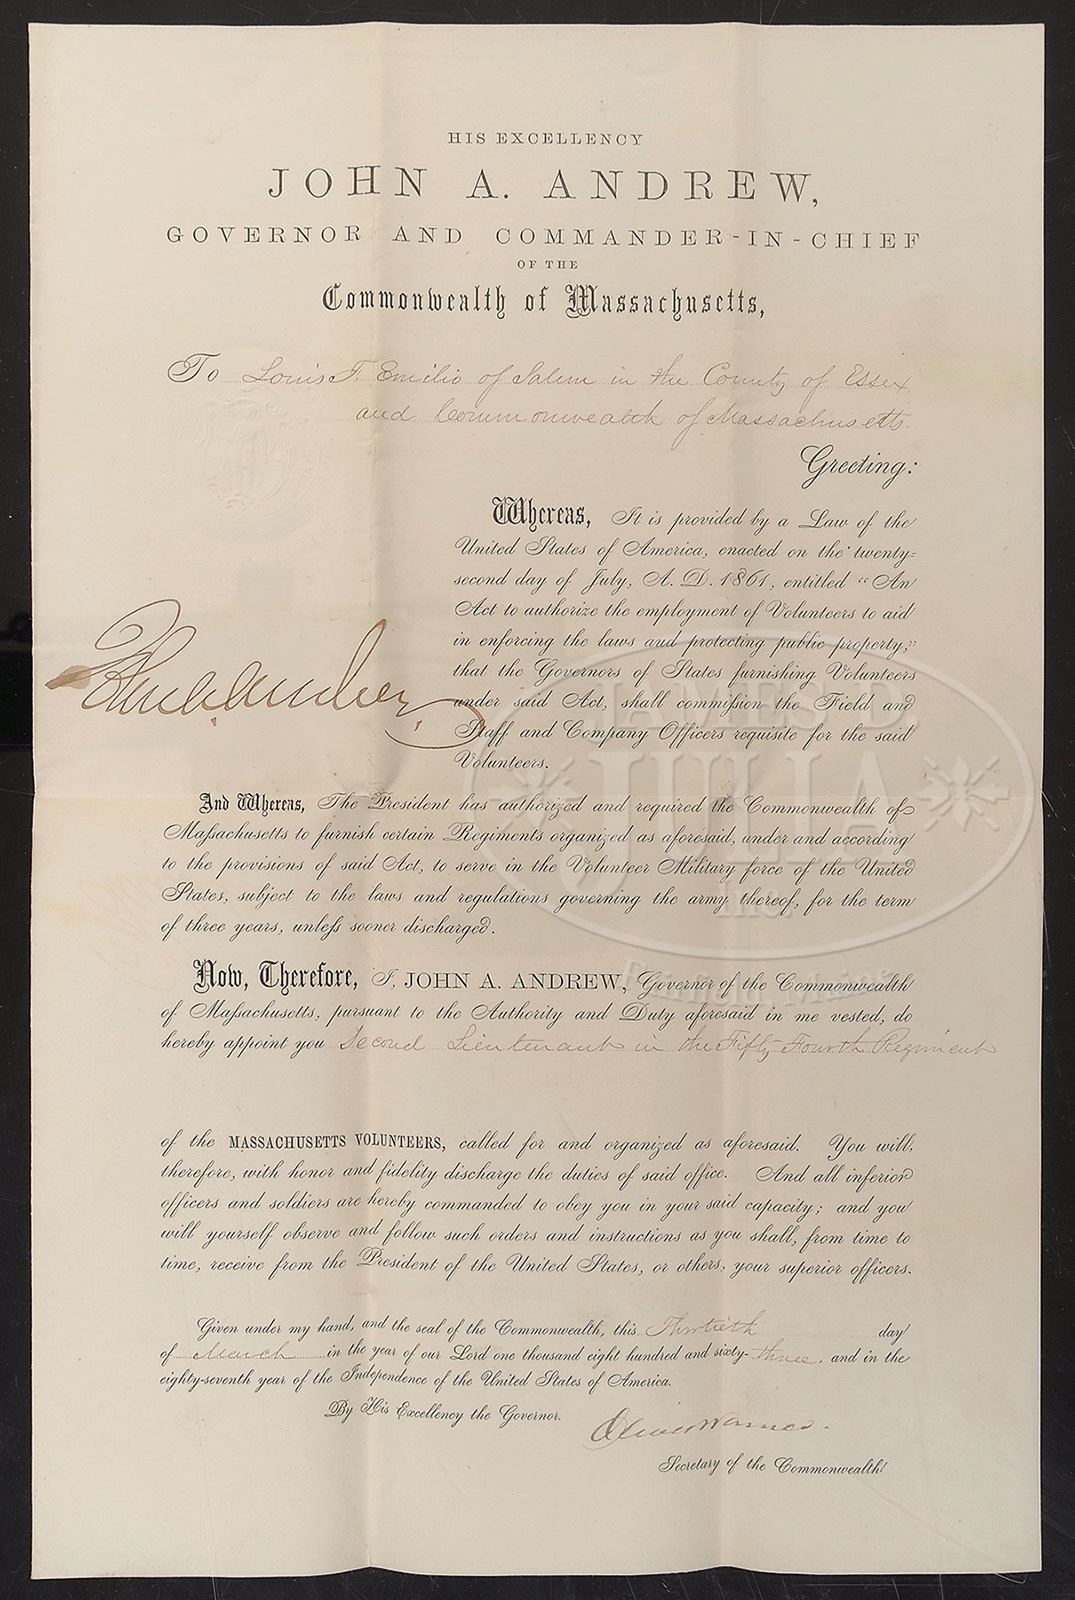 HIS EXCELLENCY
JOHN A. ANDREW,
GOVERNOR AND COMMANDER-IN-CHIEF
OF THE
Commonwealth of Massachusetts,
To Louis F. Emilio of Salem in the County of Essex,
and Commonwealth of Massachusetts.
Greeting:
Whereas, It is provided by a Law of the
United States of America, enacted on the twenty-
second day of July, A. D. 1861, entitled "An
Act to authorize the employment of Volunteers to aid
in enforcing the laws and protecting public property,"
that the Governors of States furnishing Volunteers
under said Act, shall commission the Field and
Staff and Company Officers requisite for the said
Volunteers.
JAMES D
JULIA
Inc.
Fairfield, Maine
And Whereas, The President has authorized and required the Commonwealth of
Massachusetts to furnish certain Regiments organized as aforesaid, under and according
to the provisions of said Act, to serve in the Volunteer Military force of the United
States, subject to the laws and regulations governing the army thereof, for the term
of three years, unless sooner discharged.
Now, Therefore, I, JOHN A. ANDREW, Governor of the Commonwealth
of Massachusetts, pursuant to the Authority and Duty aforesaid in me vested, do
hereby appoint you Second Lieutenant in the Fifty Fourth Regiment
of the MASSACHUSETTS VOLUNTEERS, called for and organized as aforesaid. You will,
therefore, with honor and fidelity discharge the duties of said office. And all inferior
officers and soldiers are hereby commanded to obey you in your said capacity; and you
will yourself observe and follow such orders and instructions as you shall, from time to
time, receive from the President of the United States, or others, your superior officers.
Given under my hand, and the seal of the Commonwealth, this Thirtieth day
of March in the year of our Lord one thousand eight hundred and sixty-three, and in the
eighty-seventh year of the Independence of the United States of America.
By His Excellency the Governor.
Oliver Warner.
Secretary of the Commonwealth.